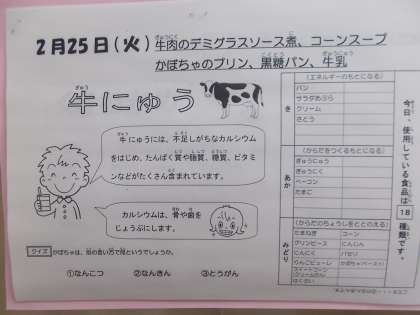 2月25日(火) 牛肉のデミグラスソース煮、コーンスープ
かぼちゃのプリン、黒糖パン、牛乳
牛にゅう
牛にゅうには、不足しがちなカルシウム
をはじめ、たんぱく質や脂質、糖質、ビタミ
ンなどがたくさん含まれています。
カルシウムは、骨や歯を
じょうぶにします。
クイズ
かぼちゃは、別の言い方で何というでしょうか。
①なんこつ ②なんきん ③とうがん
今日、使用している食品は 18 種類です。
き
(エネルギーのもとになる)
パン
サラダあぶら
クリーム
さとう
あか
(からだをつくるもとになる)
ぎゅうにゅう
ぎゅうにく
ベーコン
たまご
みどり
(からだのちょうしをととのえる)
たまねぎ コーン
グリンピース にんじん
にんにく パセリ
りんごピューレ かぼちゃペースト
スイートコーン
クリームかん
はくさい